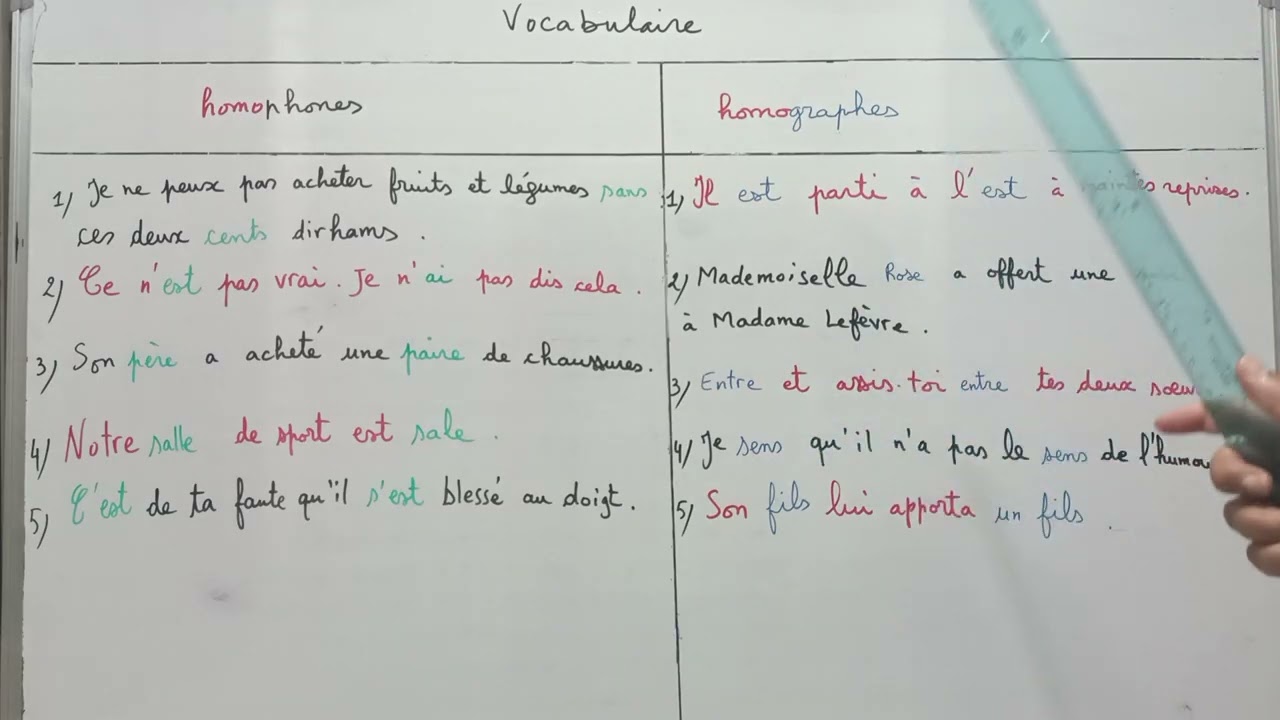 Vocabulaire
homophones
homographes
1) Je ne peux pas acheter fruits et légumes sans
ces deux cents dirhams .
2) Ce n'est pas vrai . Je n'ai pas dis cela .
3) Son père a acheté une paire de chaussures.
4) Notre salle de sport est sale .
5) C'est de ta faute qu'il s'est blessé au doigt.
1) Il est parti à l'est à maintes reprises.
2) Mademoiselle Rose a offert une
à Madame Lefèvre .
3) Entre et assis-toi entre tes deux soeu
4) Je sens qu'il n'a pas le sens de l'humou
5) Son fils lui apporta un fils .